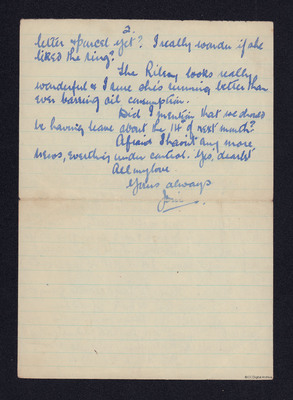 2
letter & parcel yet? I really wonder if she
liked the ring?
The Riley looks really
wonderful & I'm sure she's running better than
ever barring oil consumption.
Did I mention that we should
be having leave about the 14th of next month?
Afraid I haven't any more
news, everything under control. Yes, dearest
All my love
Yours always